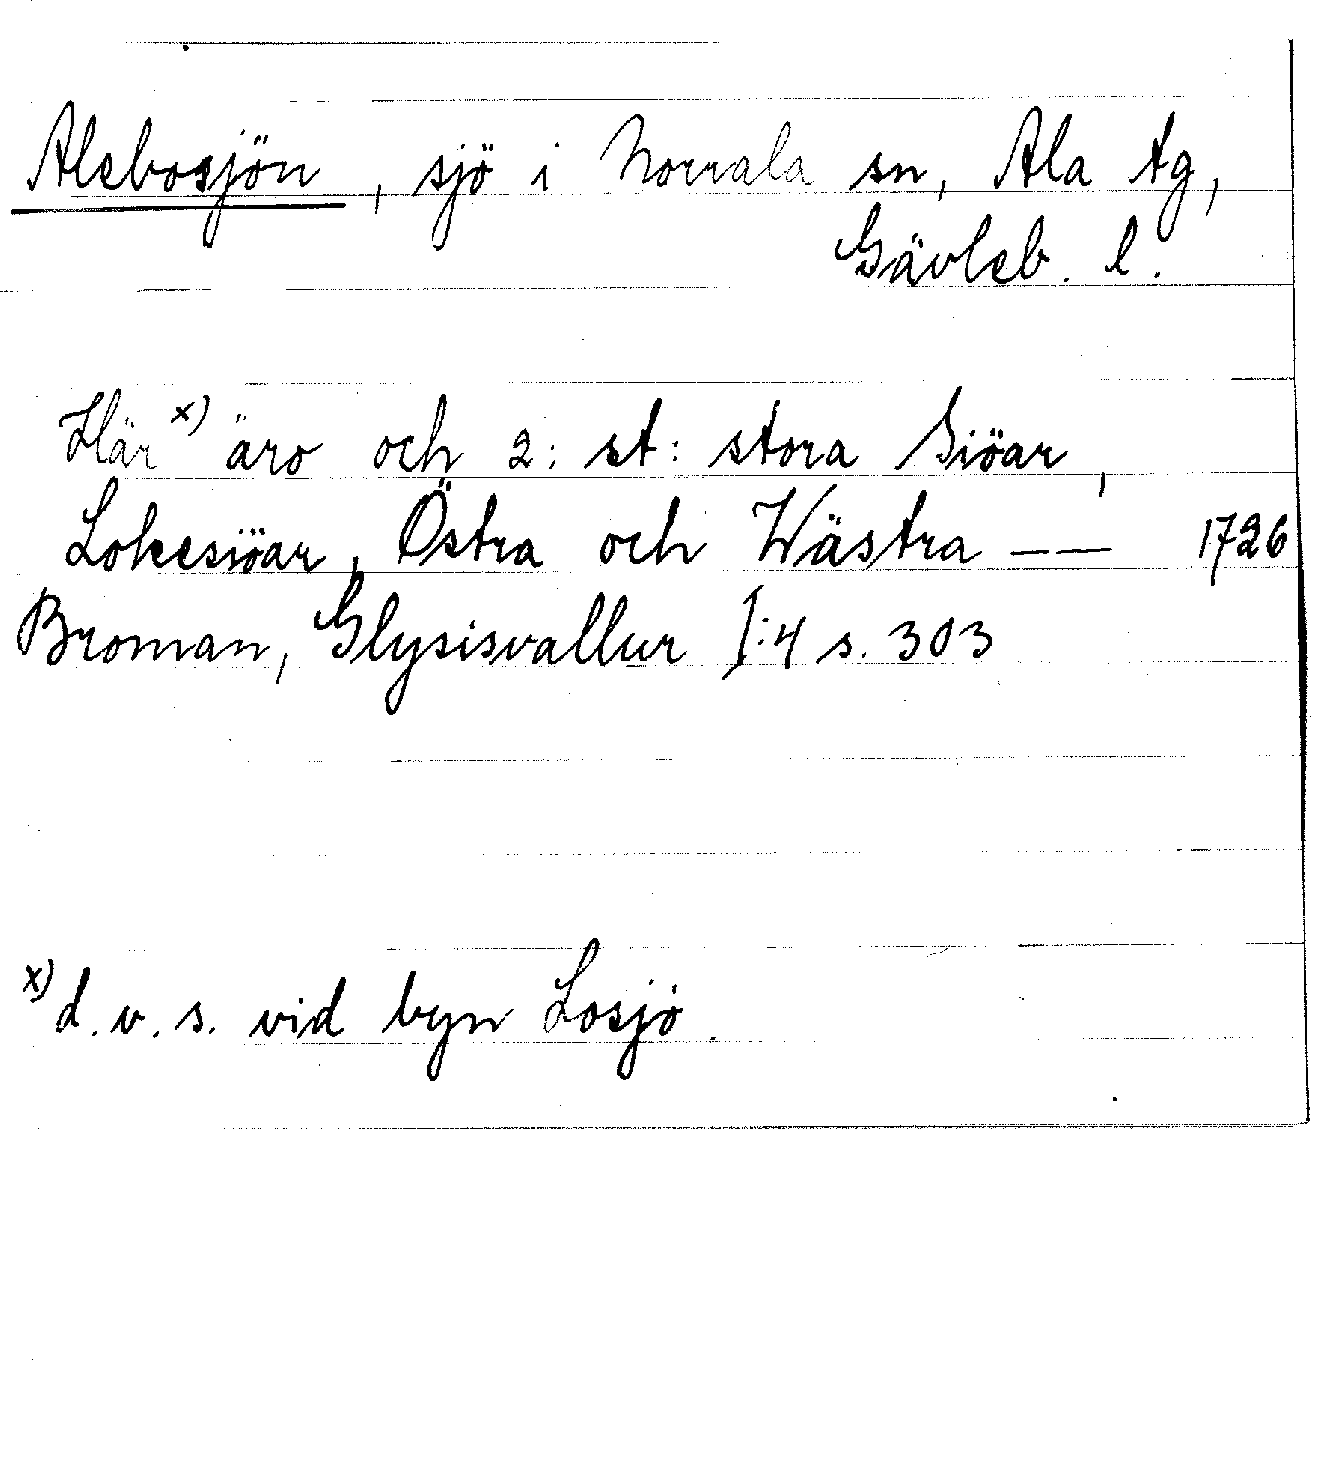 Alebosjön, sjö i Norrala sn, Ala tg,
Gävleb. l.
Här x) äro och 2: st: stora Siöar,
Lokesiöar, Östra och Wästra — — 1726
Broman, Glysisvallur I:4 s. 303
x) d.v.s. vid byn Losjö.